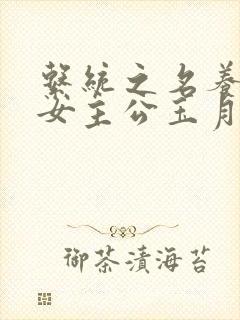 繫統之名養
女主公玉月
御茶漬海苔